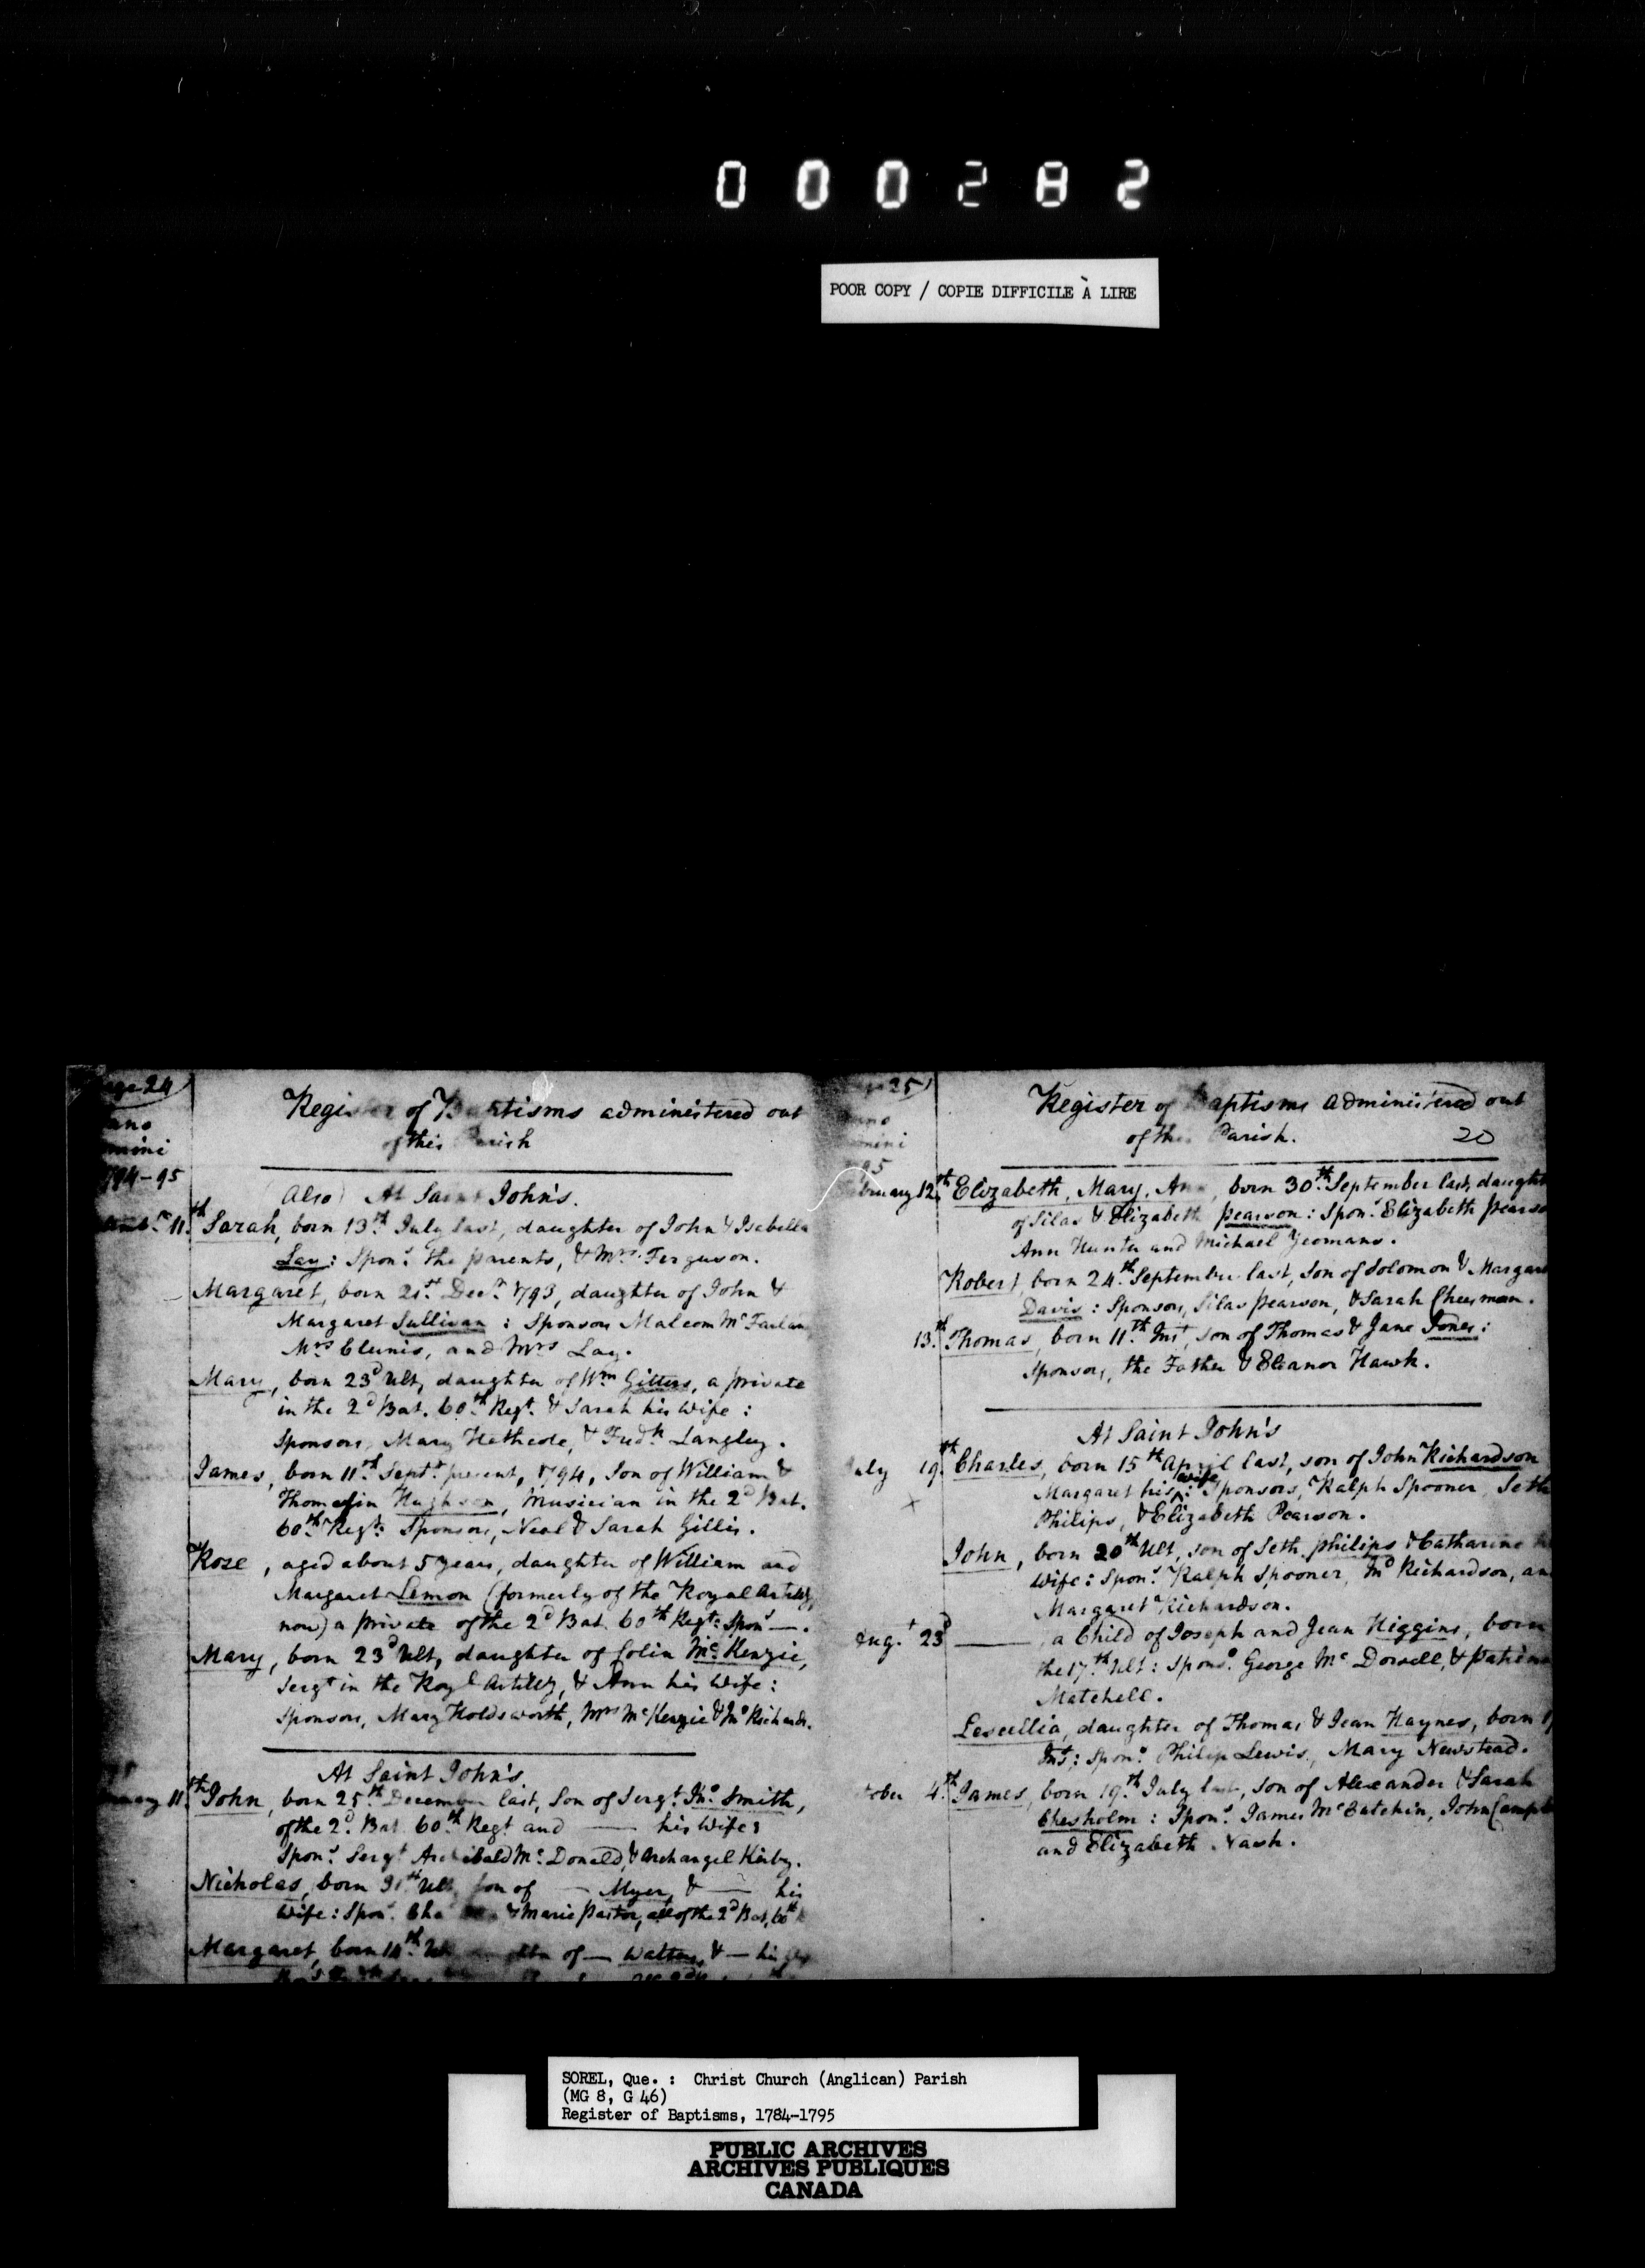 000282
POOR COPY / COPIE DIFFICILE À LIRE
24
Register of Baptisms administered out
of this Parish
1794-95
(Also) At Saint John's.
11th Sarah, born 13th July last, daughter of John & Isabella
Lay: Spons the parents, & Mrs Ferguson.
Margaret, born 21st Decr 1793, daughter of John &
Margaret Sullivan: Sponsors Malcom Mc Farlan
Mrs Clunis, and Mrs Lay.
Mary, born 23d Ult, daughter of Wm Gitters, a private
in the 2d Bat. 60th Regt. & Sarah his Wife:
Sponsors, Mary Hethcote, & Fredk Langley.
James, born 11th Septr present, 1794, Son of William &
Thomasin Hughson, Musician in the 2d Bat.
60th Regt: Sponsors, Neal & Sarah Gillis.
Rose, aged about 5 years, daughter of William and
Margaret Lemon (formerly of the Royal Artilly,
now) a private of the 2d Bat. 60th Regt: Spons —.
Mary, born 23d Ult, daughter of Colin Mc Kenzie,
Sergt in the Royl Artilly, & Ann his Wife:
Sponsors, Mary Holdsworth, Mrs McKenzie & Jno Richards.
At Saint John's
11th John, born 25th December last, Son of Sergt Jno Smith,
of the 2d Bat 60th Regt and — his Wife:
Spons Sergt Archibald Mc Donald, & Archangel Kirby.
Nicholas, born Ult, Son of — Myer, & — his
Wife: Spons & Marie Pastor, all of the 2d Bat, 60th
Margaret, born 14th of — Walters, & — his
25
Register of Baptisms administered out
of the Parish.
20
95
February 12th Elizabeth, Mary, Ann, born 30th September last, daught
of Silas & Elizabeth Pearson: Spons Elizabeth Pearso
Ann Hunter and Michael Yeomans.
Robert, born 24th September last, Son of Solomon & Margar
Davis: Sponsors, Silas Pearson, & Sarah Cheesman.
13th Thomas, born 11th Inst, son of Thomas & Jane Jones:
Sponsors, the Father & Eleanor Hawk.
At Saint John's
July 19th Charles, born 15th April last, son of John Richardson
Margaret his wife: Sponsors, Ralph Spooner, Seth
Philips, & Elizabeth Pearson.
John, born 20th Ult, son of Seth Philips & Catharine
Wife: Spons Ralph Spooner, Jno Richardson, an
Margaret Richardson.
Augt 23d —, a Child of Joseph and Jean Higgins, born
the 17th Ult: Spons George Mc Dorsell, &
Matchell.
Lescellia, daughter of Thomas & Jean Haynes, born
Inst: Spons Philip Lewis, Mary Newstead.
tober 4th James, born 19th July last, son of Alexander & Sarah
Chesholm: Spons James McCutchin, John Campb
and Elizabeth Nash.
SOREL, Que. : Christ Church (Anglican) Parish
(MG 8, G 46)
Register of Baptisms, 1784-1795
PUBLIC ARCHIVES
ARCHIVES PUBLIQUES
CANADA